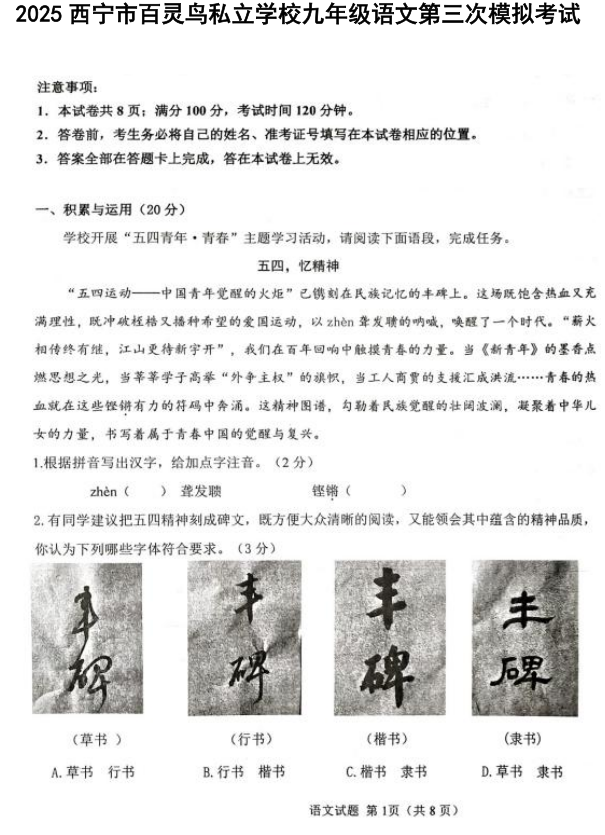 2025 西宁市百灵鸟私立学校九年级语文第三次模拟考试
注意事项：
1．本试卷共 8 页；满分 100 分，考试时间 120 分钟。
2．答卷前，考生务必将自己的姓名、准考证号填写在本试卷相应的位置。
3．答案全部在答题卡上完成，答在本试卷上无效。
一、积累与运用（20 分）
学校开展“五四青年·青春”主题学习活动，请阅读下面语段，完成任务。
五四，忆精神
“五四运动——中国青年觉醒的火炬”已镌刻在民族记忆的丰碑上。这场既饱含热血又充
满理性，既冲破桎梏又播种希望的爱国运动，以 zhèn 聋发聩的呐喊，唤醒了一个时代。“薪火
相传终有继，江山更待新宇开”，我们在百年回响中触摸青春的力量。当《新青年》的墨香点
燃思想之光，当莘莘学子高举“外争主权”的旗帜，当工人商贾的支援汇成洪流……青春的热
血就在这些铿锵有力的符码中奔涌。这精神图谱，勾勒着民族觉醒的壮阔波澜，凝聚着中华儿
女的力量，书写着属于青春中国的觉醒与复兴。
1.根据拼音写出汉字，给加点字注音。（2 分）
zhèn（ ）聋发聩 铿锵（ ）
2.有同学建议把五四精神刻成碑文，既方便大众清晰的阅读，又能领会其中蕴含的精神品质，
你认为下列哪些字体符合要求。（3 分）
丰碑
丰碑
丰碑
丰碑
（草书 ） （行书） （楷书） (隶书)
A.草书 行书 B.行书 楷书 C.楷书 隶书 D.草书 隶书
语文试题 第 1页（共 8 页）